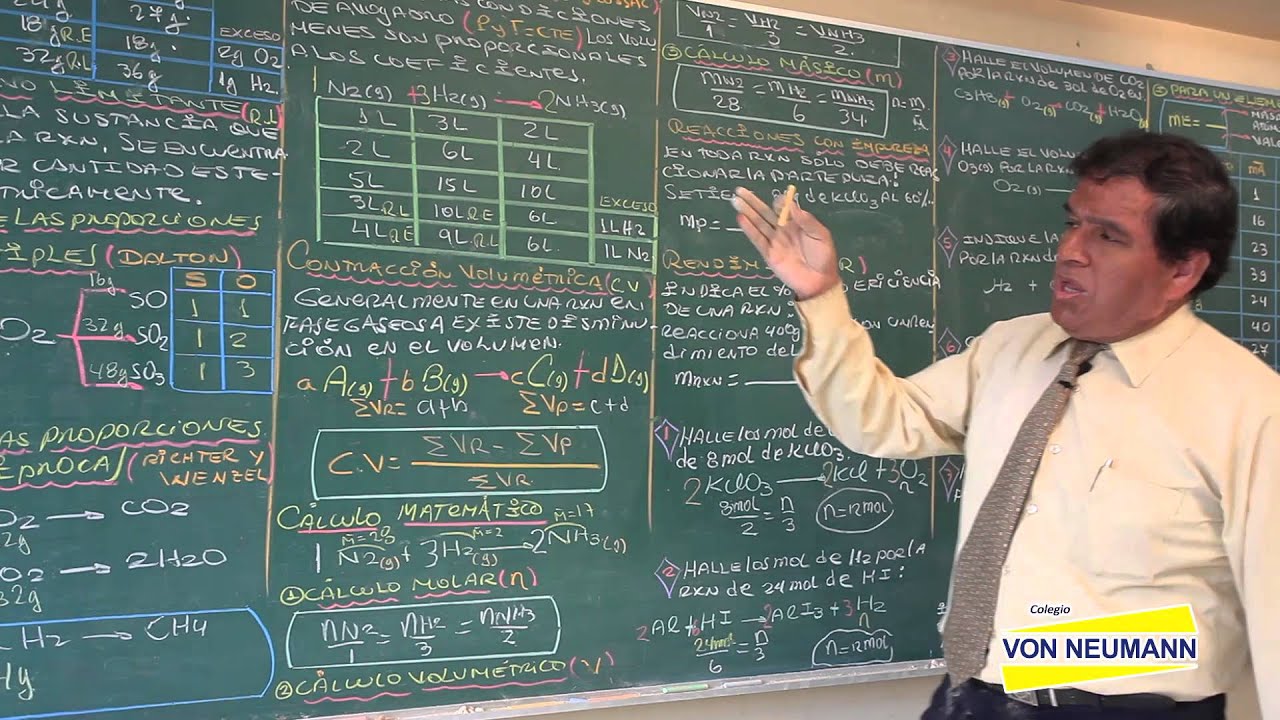 27g.
18g R.E
18g.
EXCESO
2g O2
32g R.L
36g
1g H2.
LIMITANTE (R.L)
LA SUSTANCIA QUE
LA RXN, SE ENCUENTRA
CANTIDAD ESTE-
TRICAMENTE.
E LAS PROPORCIONES
IPLES (DALTON)
S O
16g SO 1 1
O2 32g SO2 1 2
48g SO3 1 3
AS PROPORCIONES
(RICHTER Y
WENZEL)
O2 → CO2
O2 → 2H2O
32g
H2 → CH4
CONDICIONES
DE AVOGADRO (P y T = CTE) LOS VOLU
MENES SON PROPORCIONALES
A LOS COEFICIENTES.
N2(g) + 3H2(g) → 2NH3(g)
1L 3L 2L
2L 6L 4L
5L 15L 10L
EXCESO
3L R.L 10L R.E 6L 1L H2
4L R.E 9L R.L 6L 1L N2
CONTRACCIÓN VOLUMÉTRICA (C.V)
GENERALMENTE EN UNA RXN EN
FASE GASEOSA EXISTE DISMINU-
CIÓN EN EL VOLUMEN.
aA(g) + bB(g) → cC(g) + dD(g)
ΣVR = a+b ΣVP = c+d
C.V = (ΣVR - ΣVP) / ΣVR
CÁLCULO MATEMÁTICO
M̄=28 M̄=2 M̄=17
1N2(g) + 3H2(g) → 2NH3(g)
① CÁLCULO MOLAR (n)
nN2/1 = nH2/3 = nNH3/2
② CÁLCULO VOLUMÉTRICO (V)
VN2/1 = VH2/3 = VNH3/2.
③ CÁLCULO MÁSICO (m)
mN2/28 = mH2/6 = mNH3/34. n = m/M̄
REACCIONES CON IMPUREZA
EN TODA RXN SOLO DEBE REAC
CIONAR LA PARTE PURA:
SE TIENE de KClO3 AL 60%..
mP =
RENDIM R)
INDICA EL % EFICIENCIA
DE UNA RXN:
REACCIONA 400g CON UN REN
DIMIENTO DEL
mRXN =
1 HALLE los mol de
de 8 mol de KClO3.
2KClO3 → 2KCl + 3O2
n
8mol/2 = n/3 n=12mol
2 HALLE los mol de H2 POR LA
RXN DE 24 mol de HI:
2Al + 6HI → 2AlI3 + 3H2
n
24mol/6 = n/3 n=12mol
3 HALLE EL VOLUMEN DE CO2
POR LA RXN DE 30L DE O2 EN:
C3H8(g) + O2(g) → CO2(g) + H2O(g)
4 HALLE EL VOLU
O3(g) POR LA RXN
O2(g)
5 INDIQUE LA
POR LA RXN DE
H2 +
6
7
⑤ PARA UN ELEM
mE =
MASA
VALE
mA
1
16
23
39
24
40
27
Colegio
VON NEUMANN